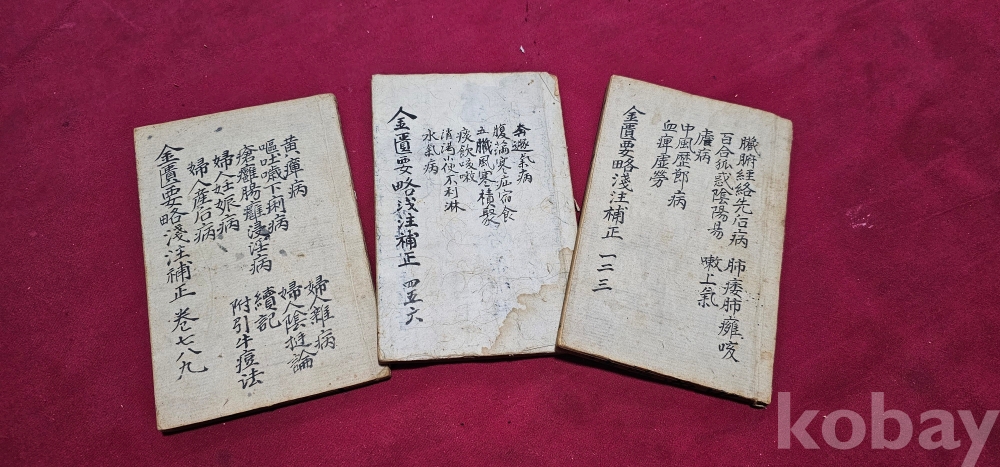 臟腑経絡先后病
百合狐惑陰陽易
瘧病
中風歴節病
血痺虛勞
肺痿肺癰咳
嗽上氣
金匱要略淺注補正 一二三
氣病
腹滿寒疝宿食
五臟風寒積聚
痰飲咳嗽
消渴小便不利淋
水氣病
金匱要略浅注補正 四五六
黃瘅病
嘔吐噦下痢病
瘡癰腸癰浸淫病
婦人妊娠病
婦人産后病
婦人雜病
婦人陰挺論
續記
附引牛痘法
金匱要略淺注補正 卷七八九
kobay